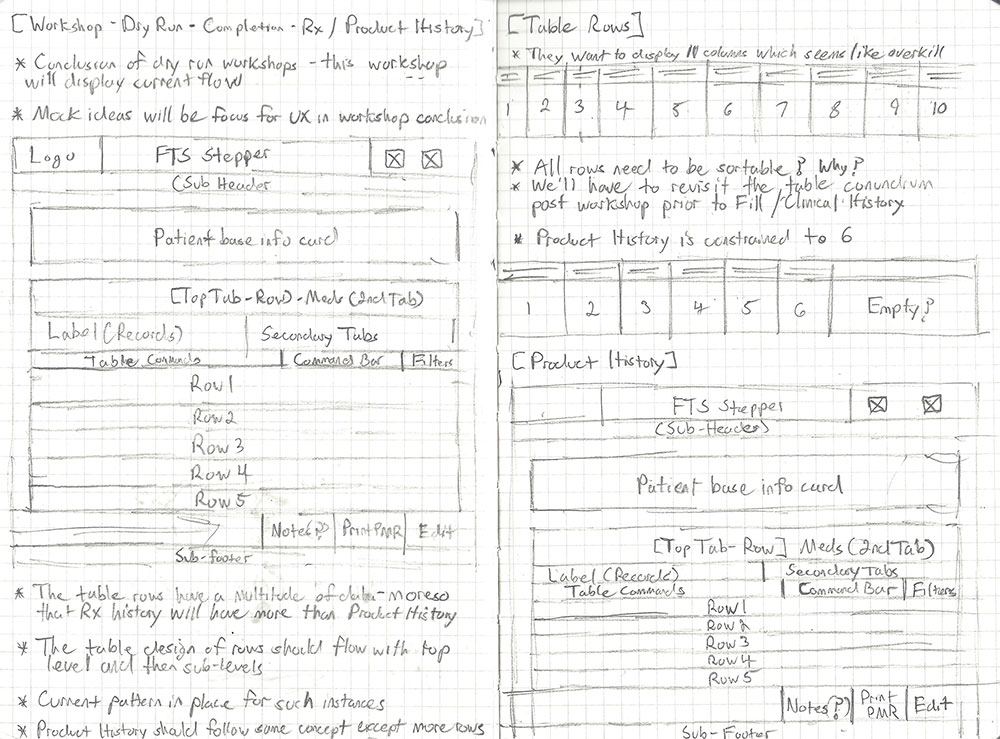 [Workshop - Dry Run - Completion - Rx / Product History]
* Conclusion of dry run workshops - this workshop
will display current flow
* Mock ideas will be focus for UX in workshop conclusion
Logo
FTS Stepper
(Sub Header
Patient base info card
[Top Tab-Row) - Meds (2nd Tab)
Label (Records)
Secondary Tabs
Table Commands
Command Bar
Filters
Row 1
Row 2
Row 3
Row 4
Row 5
Notes(?)
Print PMR
Edit
Sub-footer
* The table rows have a multitude of data - moreso
that Rx history will have more than Product History
* The table design of rows should flow with top
level and then sub-levels
* Current pattern in place for such instances
* Product History should follow same concept except more rows
[Table Rows]
* They want to display columns which seems like overkill
1 2 3 4 5 6 7 8 9 10
* All rows need to be sortable? Why?
* We'll have to revisit the table conundrum
post workshop prior to Fill / Clinical History
* Product History is constrained to 6
1 2 3 4 5 6 Empty?
[Product History]
FTS Stepper
(Sub-Header)
Patient base info card
[Top Tab-Row] Meds (2nd Tab)
Label (Records)
Secondary Tabs
Table Commands
Command Bar
Filters
Row 1
Row 2
Row 3
Row 4
Row 5
Notes(?)
Print
PMR
Edit
Sub-Footer